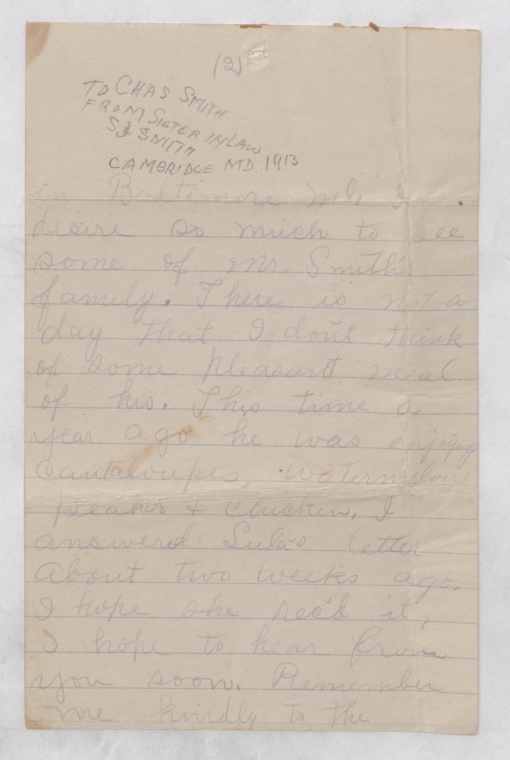 (2)
TO CHAS SMITH
FROM SISTER IN LAW
SJ SMITH
CAMBRIDGE MD 1913
in Baltimore Md. I
desire so much to see
some of Mr. Smith's
family. There is not a
day that I don't think
of some pleasant meal
of his. This time a
year ago he was enjoying
cantaloupes, watermelons
& chicken. I
answered Lula's letter
about two weeks ago.
I hope she rec'd it,
I hope to hear from
you soon. Remember
me kindly to the